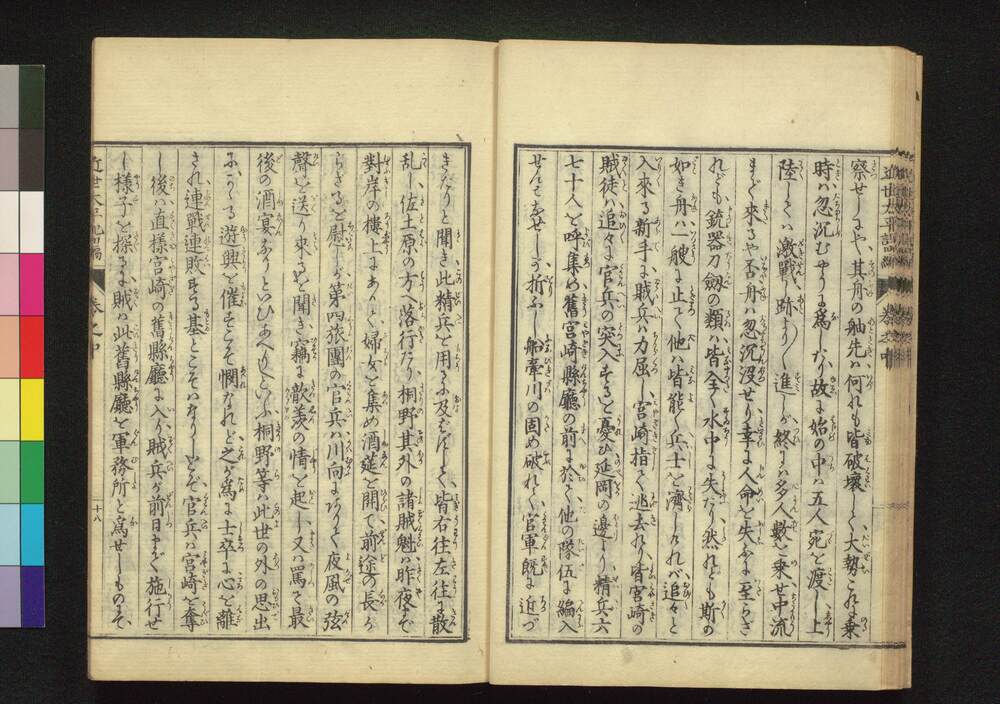 察せしにや、其舟の舳先ハ何れも皆破壊して大勢これに乗
時ハ忽沉むやうに為しあり故に始の中ハ五人宛を渡し上
陸しるハ激戦の跡より〳〵進しが終にハ多人数を乗せ中流
まで来るや否舟ハ忽沉没せり幸に人命を失ふに至らざ
れども銃器刀劔の類ハ皆全く水中に失たり然れども斯の
如き舟ハ一艘に止て他ハ皆能く兵士を濟しけれバ追々と
入来る新手に賊兵ハ力屈し宮崎指て迯去れり皆宮崎の
賊徒ハ追々に官兵の突入するを憂ひ延岡の邊より精兵六
七十人を呼集め舊宮崎縣廳の前に於て他の隊伍に編入
せんとなせしが折ふし船牽川の固め破れて官軍既に近づ
きたりと聞き此精兵を用るに及ばずして皆右往左往に散
乱し佐土原の方へ落行たり桐野其外の諸賊魁ハ昨夜まで
對岸の樓上にありて婦女を集め酒莚を開て前途の長か
らざるを慰しが第四旅團の官兵ハ川向にありて夜風の弦
聲を送り来るを聞き竊に歆羨の情を起し又ハ罵て最
後の酒宴ありといひあへりしといふ桐野等ハ此世の外の思出
にかゝる遊興を催すこそ憫なれど之が為に士卒に心を離
され連戦連敗する基とこそハなりしとぞ官兵ハ宮崎を奪
し後ハ直様宮崎の舊縣廳に入り賊兵が前日まで施行せ
し様子を探るに賊ハ此舊縣廳を軍務所と為せしものにて
近世太平記 巻之中 十八